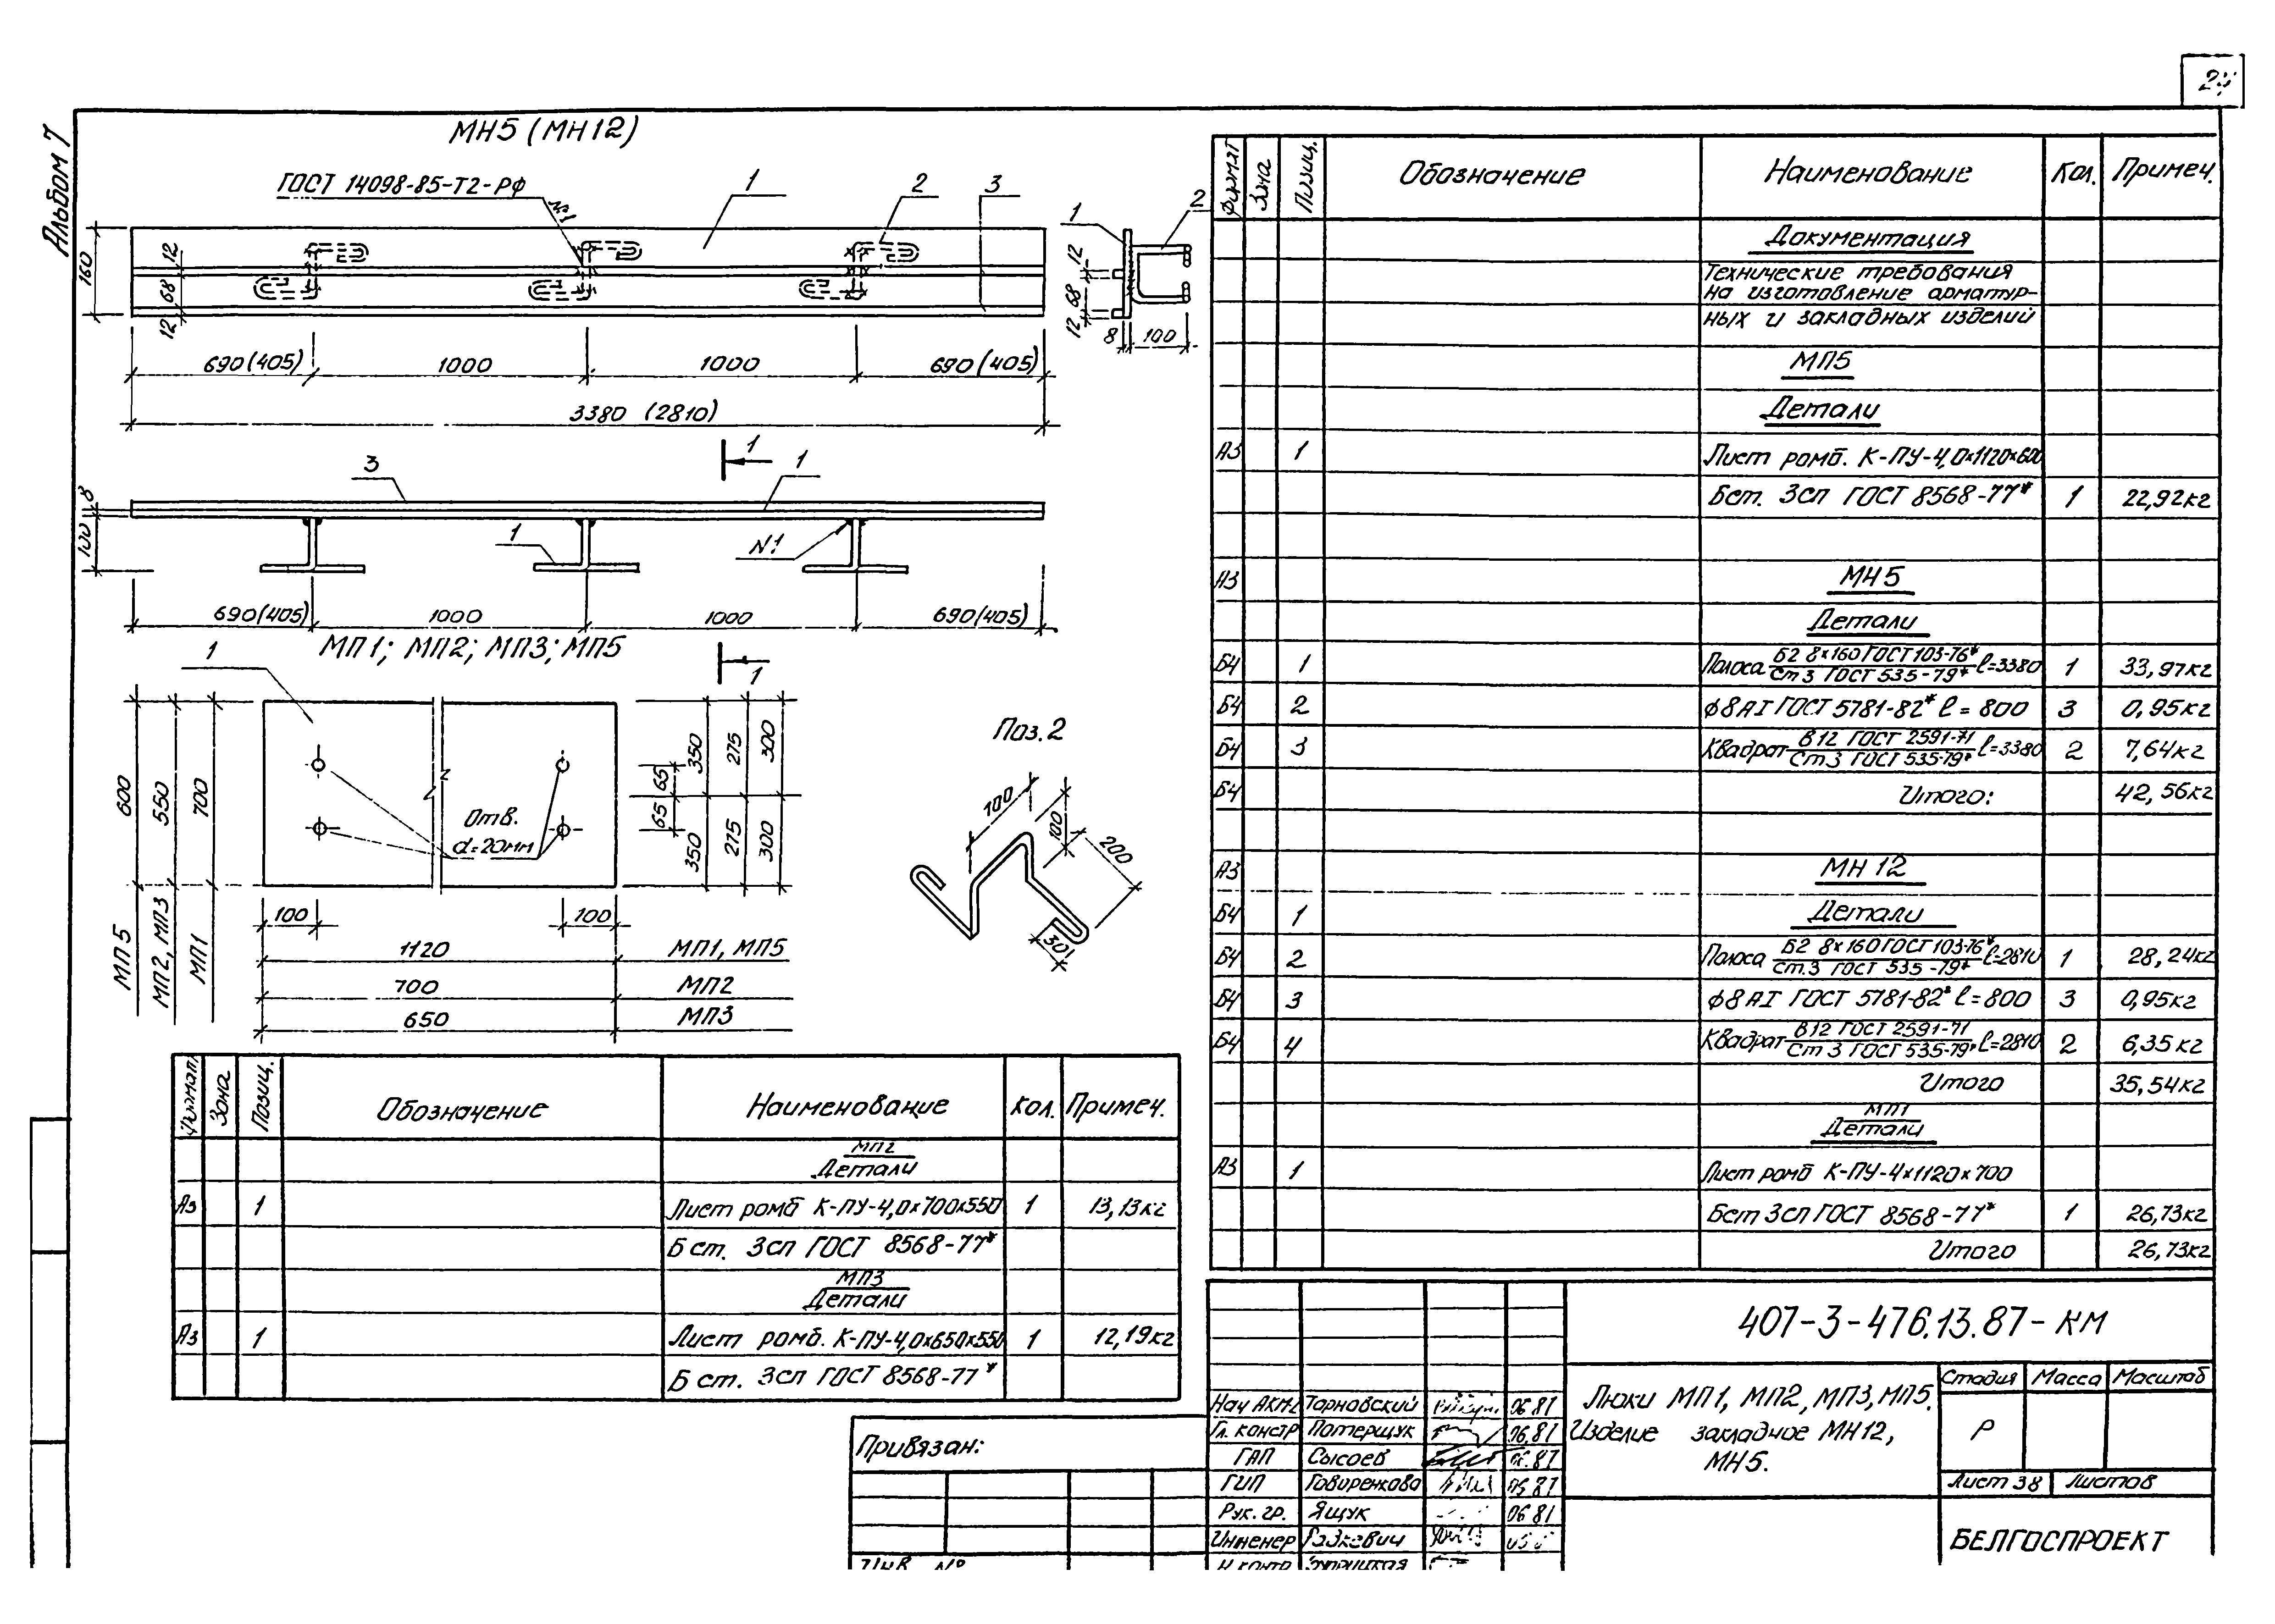 Альбом 7
МН5 (МН12)
ГОСТ 14098-85-Т2-РФ
№1
1
2
3
160
12
68
12
690(405)
1000
1000
690(405)
3380 (2810)
1
2
12
68
12
8
100
1
3
1
8
100
1
№1
690(405)
1000
1000
690(405)
1
МП1; МП2; МП3; МП5
1
600
550
700
МП5
МП2, МП3
МП1
Отв.
d=20мм
65
65
350
350
275
275
300
300
100
100
1120
МП1, МП5
700
МП2
650
МП3
Поз.2
100
100
200
30
Формат Зона Позиц. Обозначение Наименование Кол. Примеч.
МП2
Детали
А3 1 Лист ромб К-ПУ-4,0х700х550 1 13,13кг
Б ст. 3сп ГОСТ 8568-77*
МП3
Детали
А3 1 Лист ромб. К-ПУ-4,0х650х550 1 12,19кг
Б ст. 3сп ГОСТ 8568-77*
Формат Зона Позиц. Обозначение Наименование Кол. Примеч.
Документация
Технические требования
на изготовление арматур-
ных и закладных изделий
МП5
Детали
А3 1 Лист ромб. К-ПУ-4,0х1120х600
Бст. 3сп ГОСТ 8568-77* 1 22,92кг
А3 МН5
Детали
Б4 1 Полоса Б2 8х160 ГОСТ 103-76* / Ст 3 ГОСТ 535-79* ℓ=3380 1 33,97кг
Б4 2 ф8АI ГОСТ 5781-82* ℓ = 800 3 0,95кг
Б4 3 Квадрат В12 ГОСТ 2591-71 / Ст3 ГОСТ 535-79* ℓ=3380 2 7,64кг
Б4 Итого: 42,56кг
А3 МН 12
Б4 1 Детали
Б4 2 Полоса Б2 8х160 ГОСТ 103-76* / Ст.3 ГОСТ 535-79* ℓ=2810 1 28,24кг
Б4 3 ф8АI ГОСТ 5781-82* ℓ=800 3 0,95кг
Б4 4 Квадрат В12 ГОСТ 2591-71 / Ст 3 ГОСТ 535-79* ℓ=2810 2 6,35кг
Итого 35,54кг
МП1
Детали
А3 1 Лист ромб К-ПУ-4х1120х700
Бст 3сп ГОСТ 8568-77* 1 26,73кг
Итого 26,73кг
Привязан:
Нач Тарновский
Гл. констр Потерщук
ГАП Сысоев
ГИП
Рук. гр. Ящук
Инженер
407-3-476.13.87-КМ
Люки МП1, МП2, МП3, МП5.
Изделие закладное МН12,
МН5.
Стадия Масса Масштаб
Р
Лист 38 Листов
БЕЛГОСПРОЕКТ